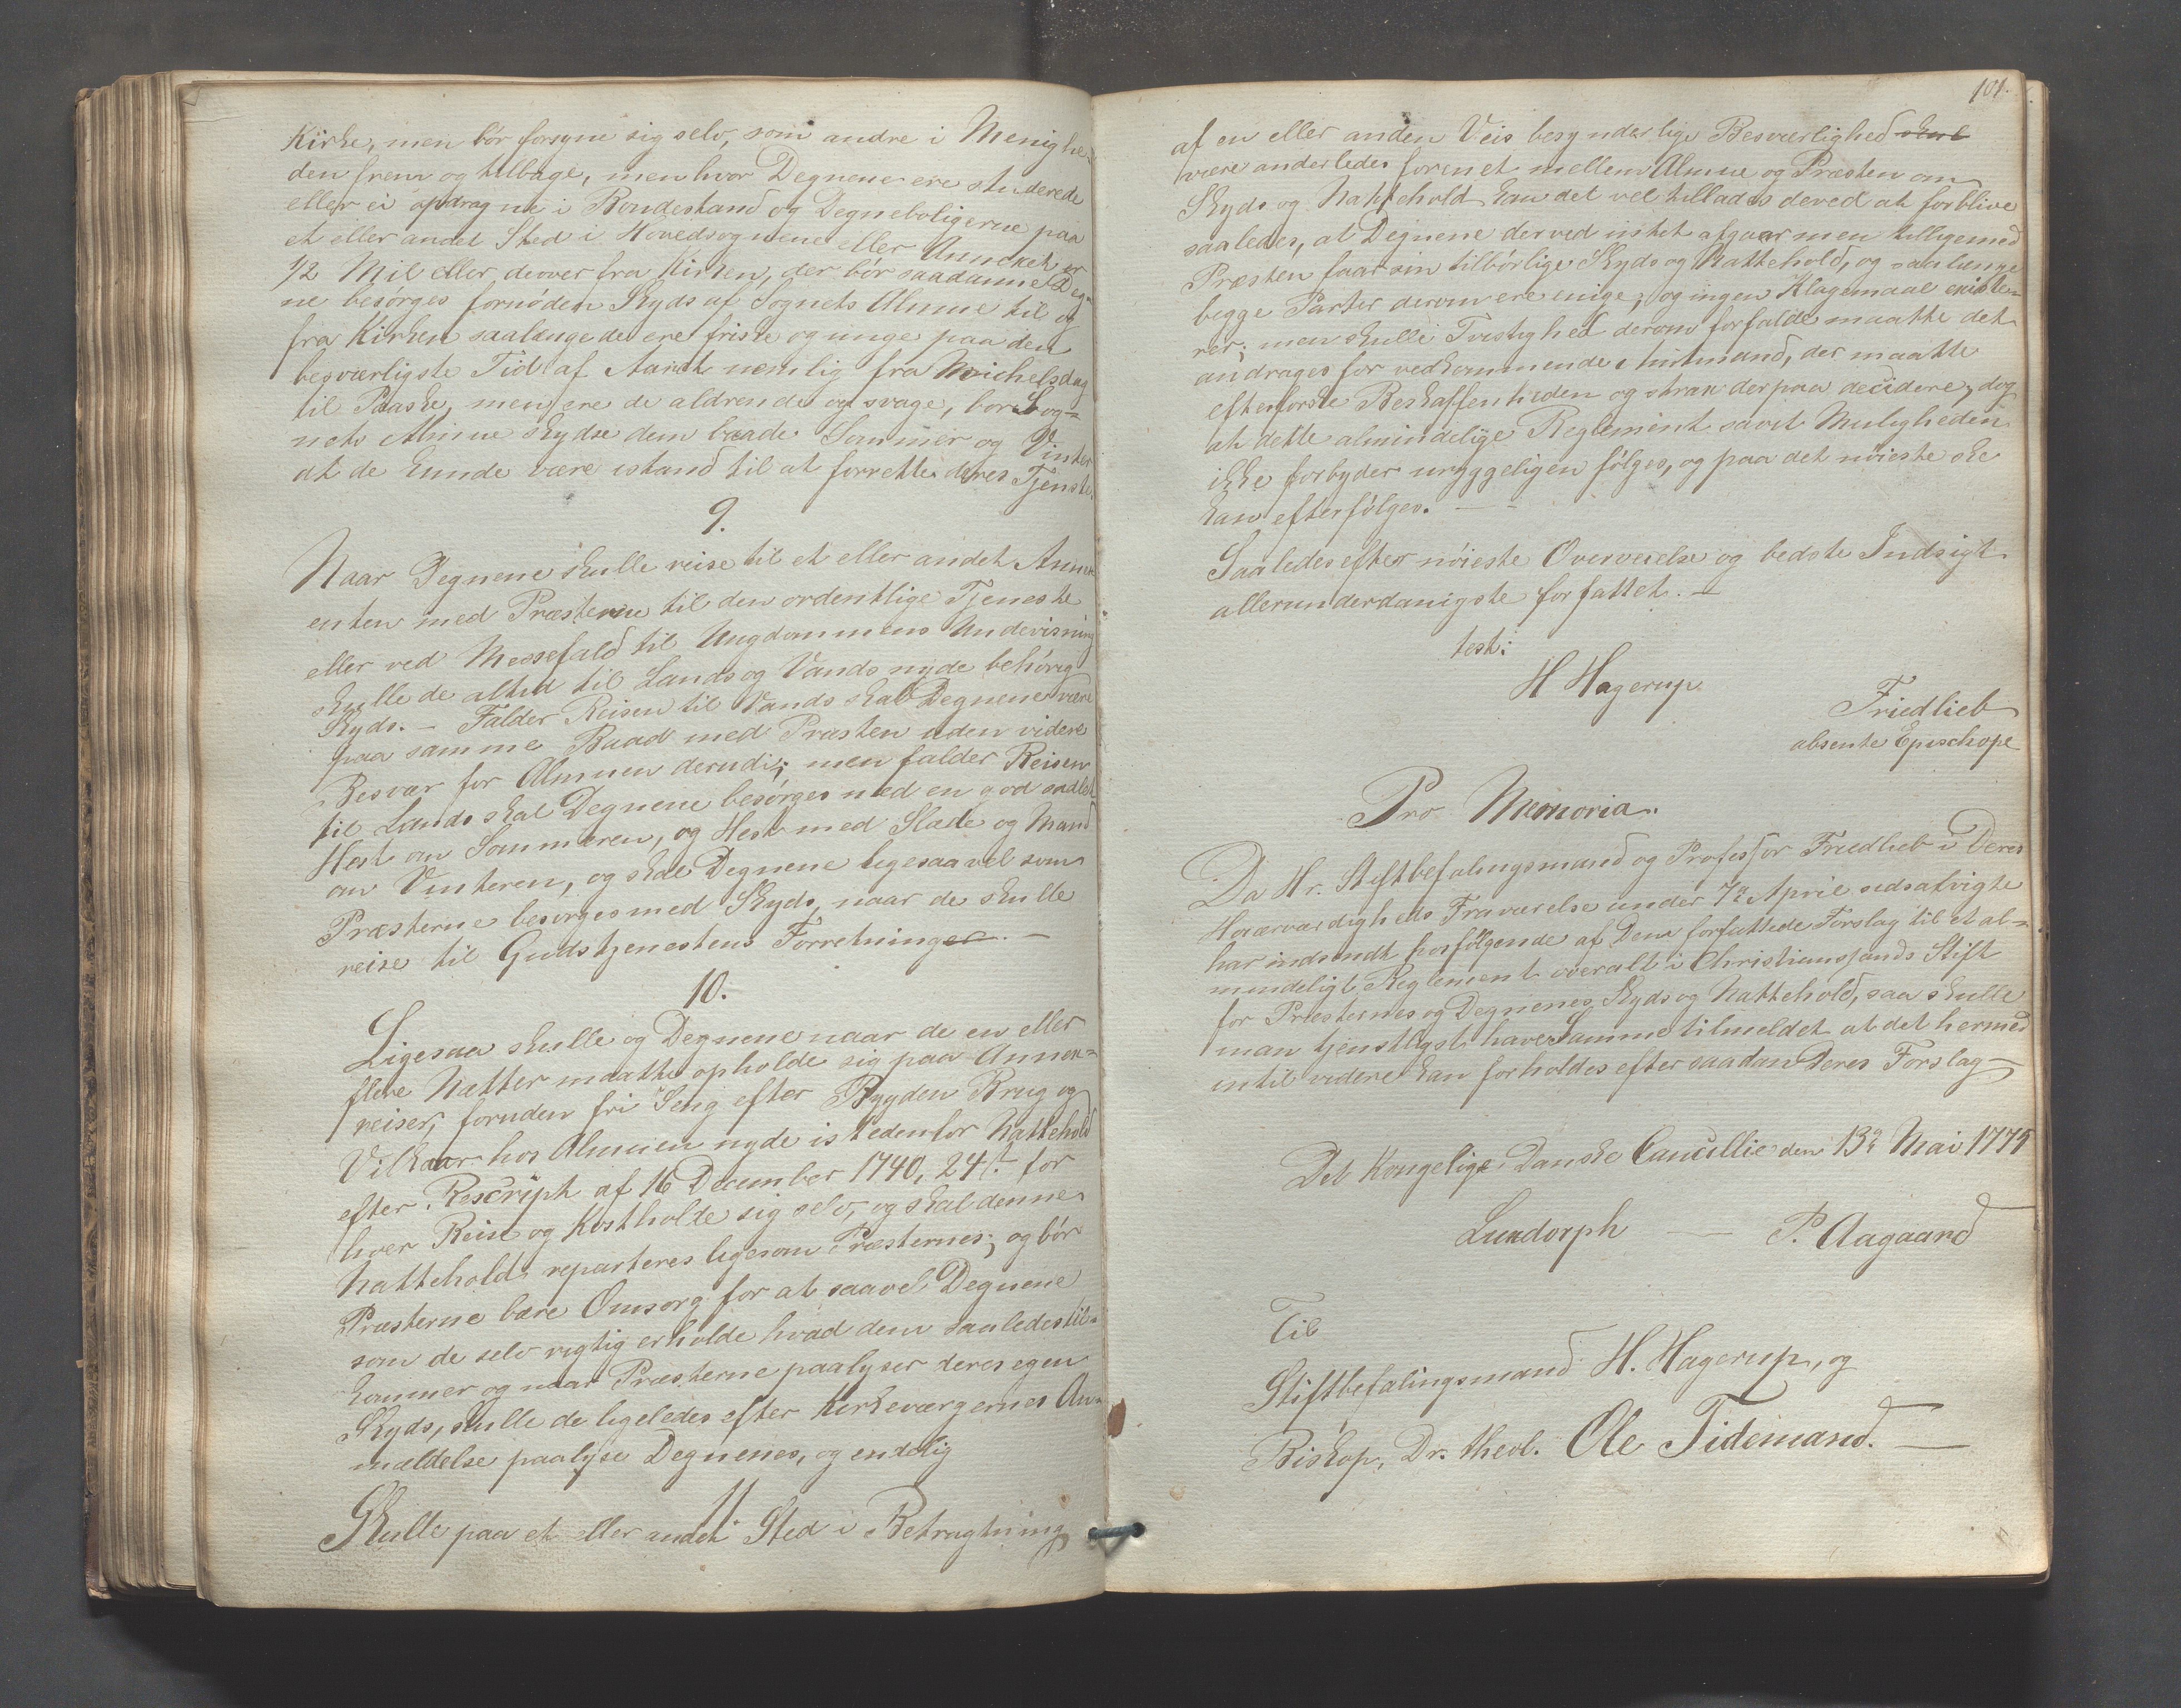 Kirke, men bör forsyne sig selv, som andre i Menighe-
den frem og tilbage, men hvor Degnene ere studerede
eller ei opdragne i Bondestand og Degneboligerne paa
et eller andet Sted i Hovedsognene eller Annexet er
1/2 Mil eller derover fra Kirken, der bör saadanne Deg-
ne besörges fornöden Skyds af Sognets Almue til og
fra Kirken saalænge de ere friske og unge paa den
besværligste Tid af Aaret nemlig fra Michelsdag
til Paaske, men ere de aldrende og svage, bör Sog-
nets Almue skydse dem baade Sommer og Vinter
at de kunde være istand til at forrette deres Tjeneste.
9.
Naar Degnene skulle reise til et eller andet Annex
enten med Præsterne til den ordentlige Tjeneste
eller ved Messefald til Ungdommens Undevisning
skulle de altid til Lands og Vands nyde behörig
Skyds. – Falder Reisen til Vands skal Degnene være
paa samme Baad med Præsten uden videre
Besvær for Almuen derudi; men falder Reisen
til Lands skal Degnene besörges med en god sadlet
Hest om Sommeren, og Hest med Slæde og Mand
om Vinteren, og skal Degnene ligesaavel som
Præsterne besörges med Skyds, naar de skulle
reise til Gudstjenestens Forretninger. –
10.
Ligesaa skulle og Degnene naar de en eller
flere Nætter maatte opholde sig paa Annex-
reiser, foruden fri Seng efter Bygden Brug og
Vilkaar hos Almuen nyde istedenfor Nattehold
efter Rescript af 16 December 1740, 24 s. for
hver Reise og Kostholde sig selv, og skal denne
Nattehold reparteres ligesom Præsternes; og bör
Præsterne bære Omsorg for at saavel Degnene
som de selv rigtig erholde hvad dem saaledes til-
kommer og naar Præsterne paalyser deres egen
Skyds, skulle de ligeledes efter Kirkeværgernes An-
mældelse paalyse Degnenes, og endelig
11
Skulle paa et eller andet Sted i Betragtning
101.
af en eller anden Veis besynderlige Besværlighed skul
være anderledes forenet mellem Almue og Præsten om
Skyds og Nattehold kan det vel tillades derved at forblive
saaledes, at Degnene derved intet afgaar men tilligemed
Præsten faar sin tilbörlige Skyds og Nattehold, og saalænge
begge Parter derom ere enige, og ingen Klagemaal existe-
rer; men skulle Tvistighed derom forfalde maatte det
andrages for vedkommende Amtmand, der maatte
efterforske Beskaffenheden og strax derpaa decidere, dog
at dette almindelige Reglement savit Muligheden
ikke forbyder uryggeligen fölges, og paa det nöieste ske
kan efterfölges. – –
Saaledes efter nöieste Overveielse og bedste Indsigt
allerunderdanigste forfattet. –
test:
H Hagerup
Friedlieb
absente Epischope
Pro Memoria.
Da Hr. Stiftbefalingsmand og Professor Friedlieb i Deres
Höiærværdigheds Fraværelse under 7de April sidsatvigte
har indsendt hosfölgende af Dem forfattede Forslag til et al-
mindeligt Reglement overalt i Christianssands Stift
for Præsternes og Degnenes Skyds og Nattehold, saa skulle
man tjenstligst have Samme tilmeldet at det hermed
intil videre kan forholdes efter saadan Deres Forslag –
Det Kongelige Danske Cancellie den 13de Mai 1775
Luxdorph — P. Aagaard
Til
Stiftbefalingsmand H. Hagerup, og
Biskop, Dr. theol. Ole Tidemand. —